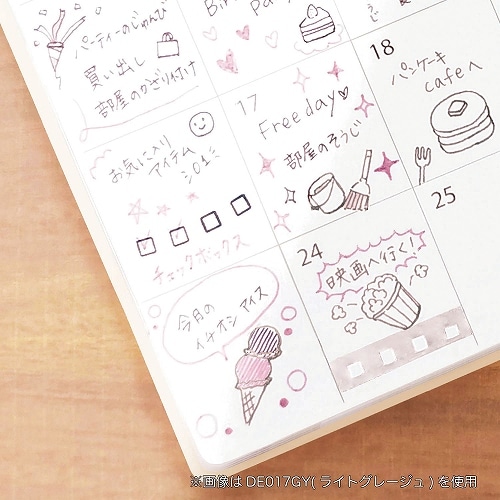 パーティーのじゅんび
買い出し
部屋のかざり付け
うじ
17
Freeday♡
部屋のそうじ
18
パンケーキ
cafeへ
お気に入り
アイテム
チェックボックス
24
映画へ行く!
25
今月の
イチオシ アイス
※画像は DE017GY(ライトグレージュ)を使用